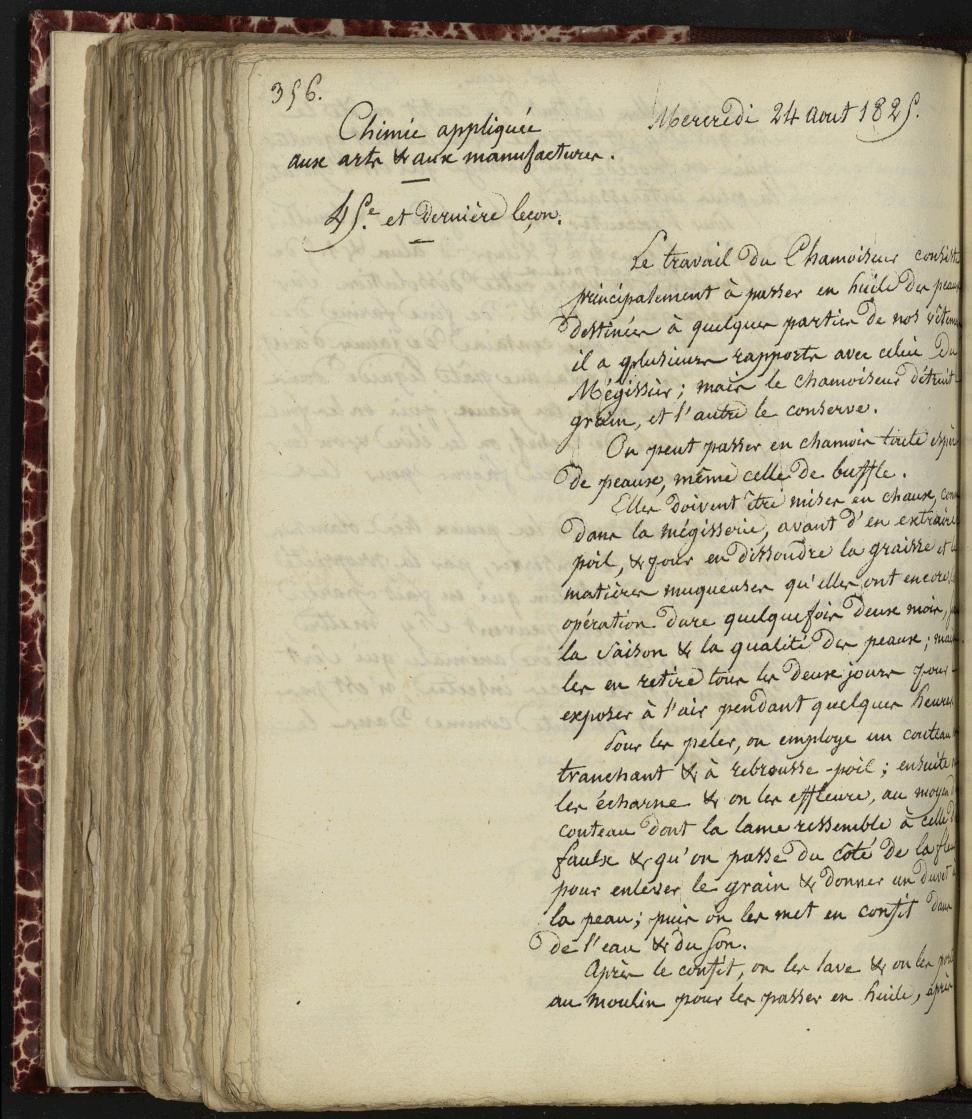 356.
Mercredi 24 aout 1825.
Chimie appliquée
aux arts & aux manufactures.
45.e et dernière leçon.
Le travail du Chamoiseur consist
principalement à passer en huile des peau
destinées à quelques parties de nos vêtem
il a plusieurs rapports avec celui du
Mégissier ; mais le chamoiseur détruit
grain, et l'autre le conserve.
On peut passer en chamois toute espè
de peaux, même celle de buffle.
Elles doivent être mises en chaux, com
dans la mégisserie, avant d'en extraire
poil, & pour en dissoudre la graisse et
matières muqueuses qu'elles ont encore
opération dure quelquefois deux mois,
la saison & la qualité des peaux ; mai
les en retire tous les deux jours pour
exposer à l'air pendant quelques heures
Pour les peler, on employe un couteau
tranchant & à rebrousse-poil ; ensuite
les écharne & on les effleure, au moyen
couteau dont la lame ressemble à celle
faulx & qu'on passe du côté de la fleu
pour enlever le grain & donner un duvet
la peau ; puis on les met en confit dans
de l'eau & du son.
Après le confit, on les lave & on les
au moulin pour les passer en huile, après